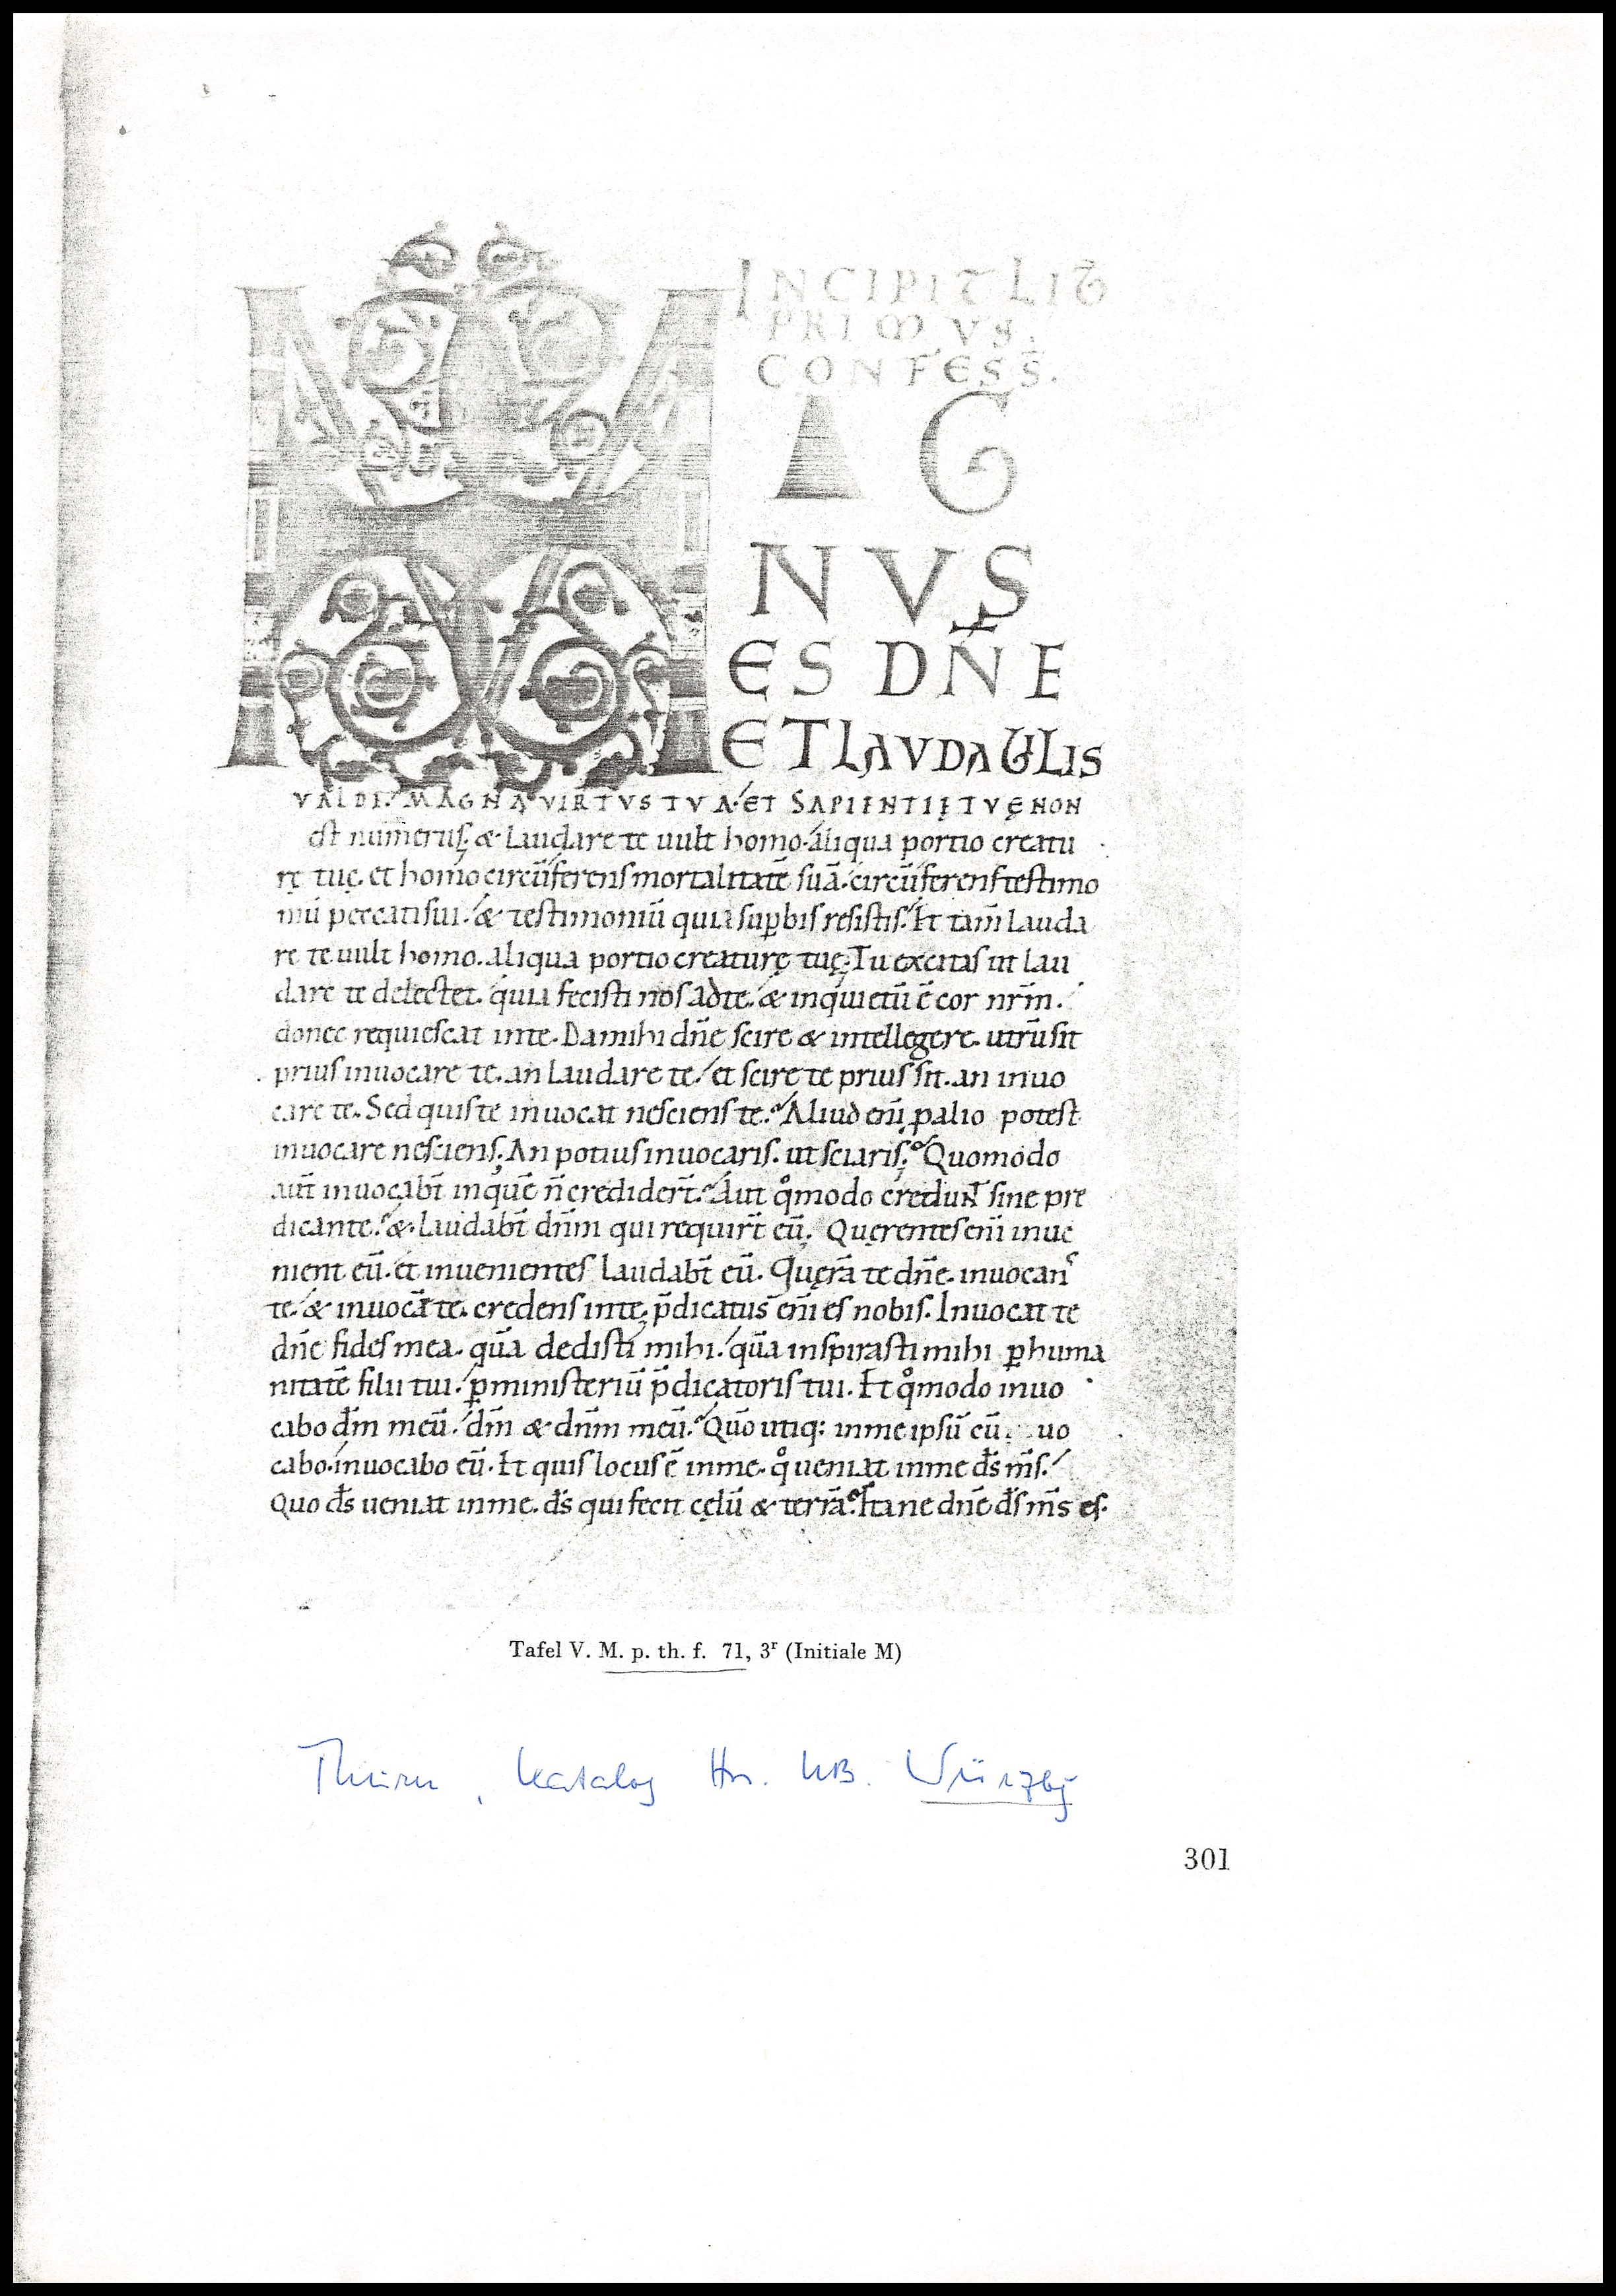 INCIPIT LIB̄
PRIMVS.
CONFESS̄.
M A G
NVS
ES DN̄E
ET LAVDABILIS
VALDE. MAGNA VIRTVS TVA. ET SAPIENTIĘ TVĘ NON
est numerus. & laudare te uult homo. aliqua portio creatu
rę tuę. et homo circūferens mortalitatē suā. circūferens testimo
niū peccati sui. & testimoniū quia sup̱bis resistis. Et tam̄ lauda
re te uult homo. aliqua portio creaturę tuę. Tu excitas ut lau
dare te delectet. quia fecisti nos ad te. & inquietū ē cor nr̄m.
donec requiescat in te. Da mihi dn̄e scire & intellegere. utrū sit
prius inuocare te. an laudare te. et scire te prius sit. an inuo
care te. Sed quis te inuocat nesciens te. Aliud eni̅ p̱ alio potest
inuocare nesciens. An potius inuocaris. ut sciaris. Quomodo
aut̄ inuocabt̄ in quē n̄ credider̄t. Aut qͦmodo credunt sine pre
dicante. & laudabt̄ dn̄m qui requir̄t eū. Quęrentes eni̅ inue
nient eū. et inuenientes laudabt̄ eū. Quęrā te dn̄e. inuocans
te. & inuocē te. credens in te. p̄dicatus eni̅ es nobis. Inuocat te
dn̄e fides mea. quā dedisti mihi. quā inspirasti mihi p̱ huma
nitatē filii tui. p̱ ministeriū p̄dicatoris tui. Et qͦmodo inuo
cabo dm̄ meū. dm̄ & dn̄m meū. Quō utiq: in me ipsū eū uo
cabo. inuocabo eū. Et quis locus ē in me. qͦ ueniat in me ds̄ ms̄.
Quo ds̄ ueniat in me. ds̄ qui fecit cęlū & terrā. Itane dn̄e ds̄ ms̄ es.
Tafel V. M. p. th. f. 71, 3ʳ (Initiale M)
Thurn, Katalog Hss. UB. Würzbg
301